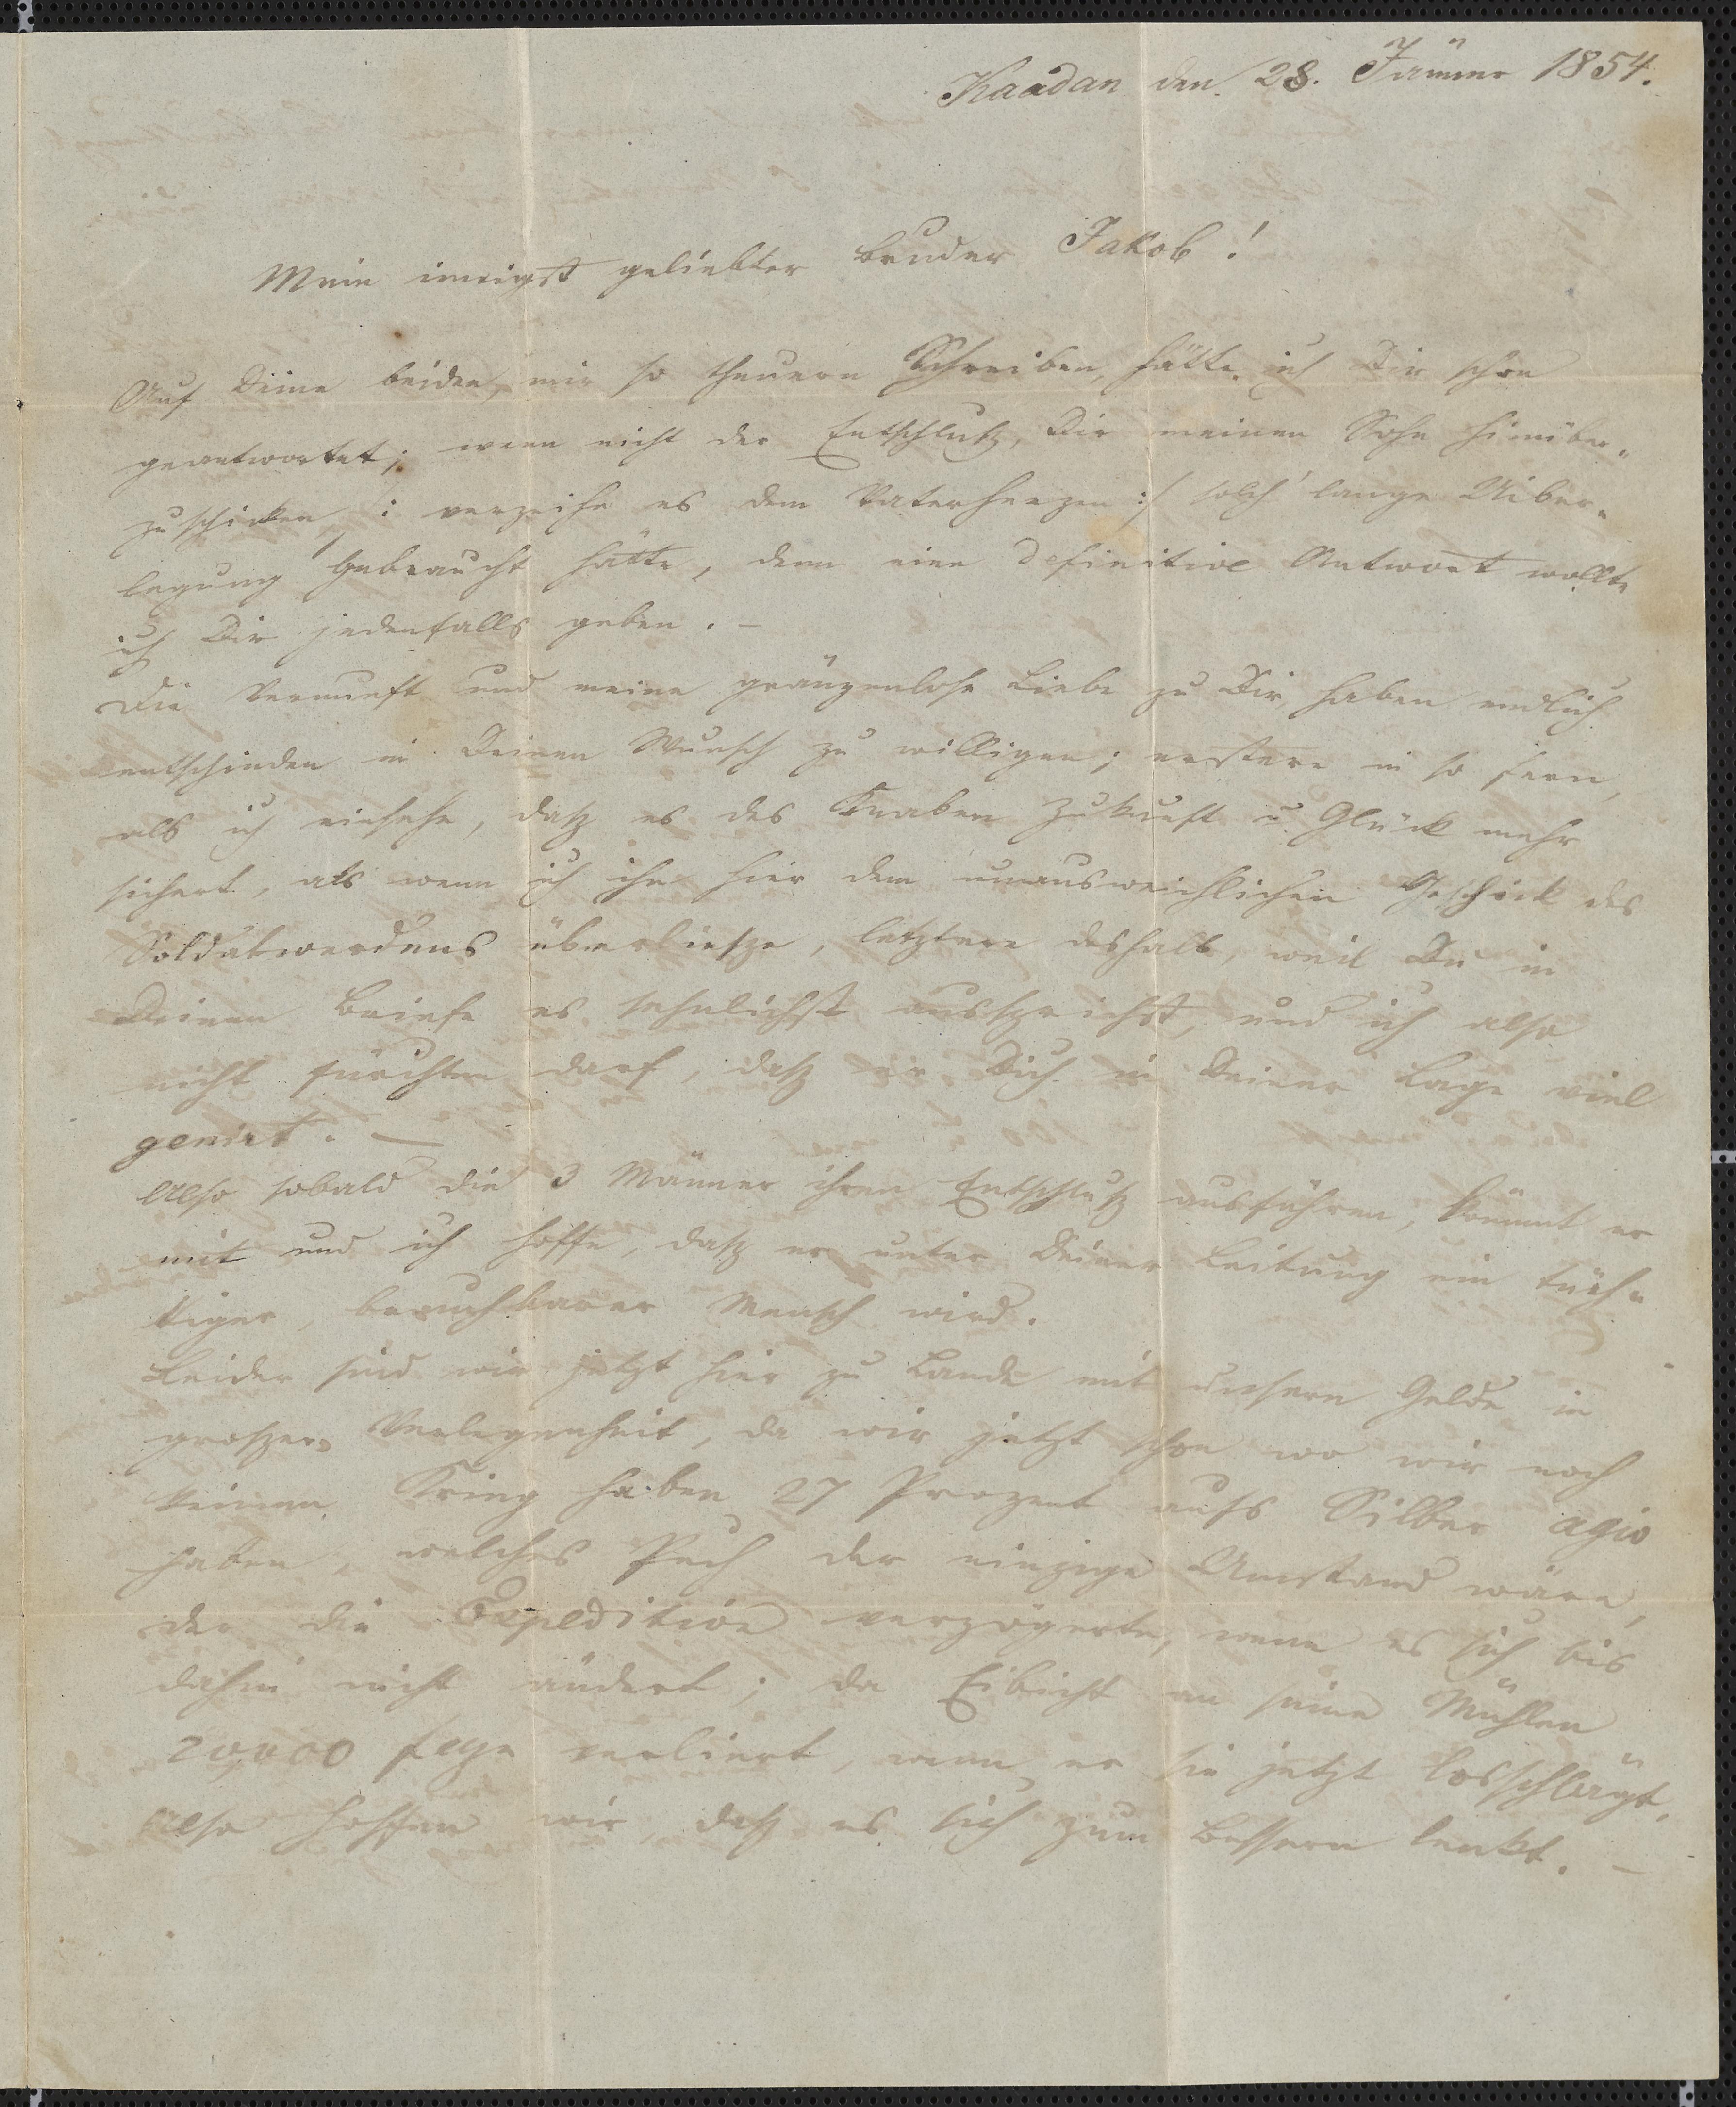 Kaadan den 28. Jänner 1854.
Mein innigst geliebter Bruder Jakob!
Auf Deine beiden, mir so theuern Schreiben, hätte ich Dir schon
geantwortet; wenn nicht der Entschlusz, Dir meinen Sohn hinüber„
zuschicken, /: verzeihe es dem Vaterherzen :/ solch' lange Uiber„
legung gebraucht hätte, denn eine definitive Antwort wollte
ich Dir jedenfalls geben. —
Die Vernunft und meine gränzenlose Liebe zu Dir, haben endlich
entschieden in Deinen Wunsch zu willigen; erstere in so fern,
als ich einsehe, dasz es des Knaben Zukunft u Glück mehr
sichert, als wenn ich ihn hier dem unausweichlichen Geschick des
Soldatwerdens überliesze, letztere deshalb, weil Du in
Deinem Briefe es sehnlichst aussprichst, und ich also
nicht fürchten darf, dasz er Dich in Deiner Lage viel
genirt. —
Also sobald die 3 Männer ihren Entschlusz ausführen, kömmt er
mit und ich hoffe, dasz er unter Deiner Leitung ein tüch„
tiger, brauchbarer Mensch wird.
Leider sind wir jetzt hier zu Lande mit unserm Gelde in
groszer Verlegenheit, da wir jetzt schon wo wir noch
keinen Krieg haben 27 Prozent aufs Silber agio
haben, welches Pech der einzige Umstand wäre,
der die Expedition verzögerte, wenn es sich bis
dahin nicht ändert; da Eibicht an seine Mühlen
20,000 verliert, wenn er sie jetzt losschlägt,
also hoffen wir, dasz es sich zum Bessern lenkt. —